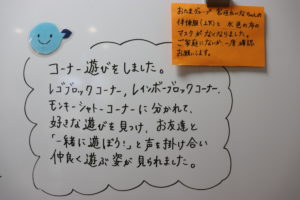 コーナー遊びをしました。
レゴブロックコーナー、レインボーブロックコーナー、
モンキーシャトーコーナーに分かれて、
好きな遊びを見つけ、お友達と
「一緒に遊ぼう！」と声を掛け合い
仲良く遊ぶ姿が見られました。
体操服(上下)と 水色の布の
マスクがないなりました。
ご家庭にないか一度確認
お願いします。